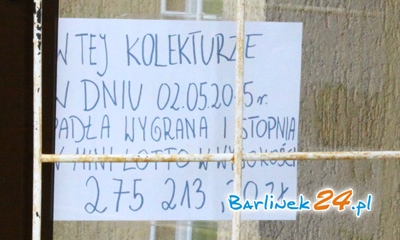 W TEJ KOLEKTURZE
W DNIU 02.05.2015 r.
PADŁA WYGRANA I STOPNIA
W MINI LOTTO W WYSOKOŚCI
275 213, ZŁ
Barlinek24.pl